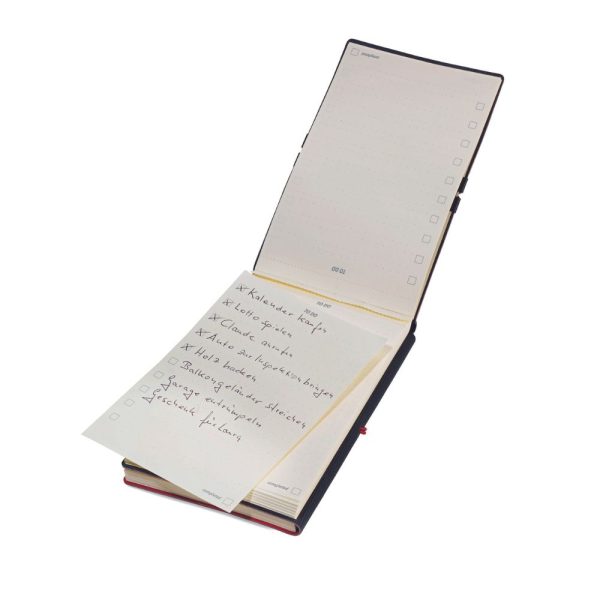 TO DO
TO DO
TO DO
Kalender kaufen
Lotto spielen
Claude anrufen
Auto zur Inspektion bringen
Holz hacken
Balkongeländer streichen
Garage entrümpeln
Geschenk für Laura